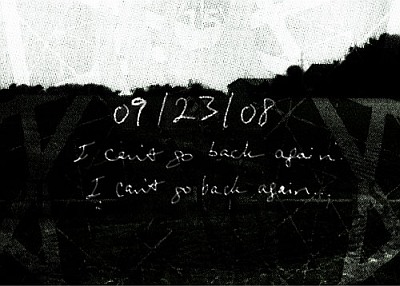 09/23/08
I can't go back again.
I can't go back again...